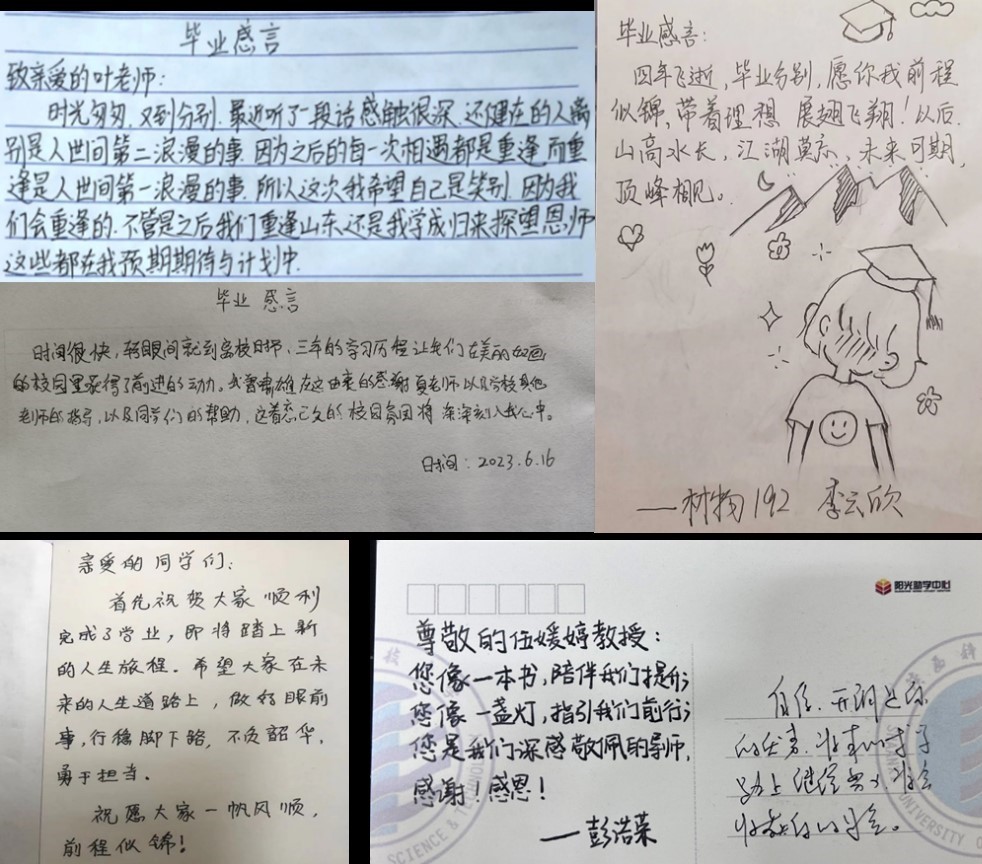 毕业感言
致亲爱的叶老师：
时光匆匆，又到分别，最近听了一段话感触很深，还健在的人离
别是人世间第二浪漫的事，因为之后的每一次相遇都是重逢，而重
逢是人世间第一浪漫的事，所以这次我希望自己是笑别，因为我
们会重逢的，不管是之后我们重逢山东，还是我学成归来探望恩师
这些都在我预期期待与计划中.
毕业感言
时间很快，转眼间就到离校时节，三年的学习历程让我们在美丽如画
的校园里获得了前进的动力。我 在这由衷的感谢夏老师以及学校其他
老师的指导，以及同学们的帮助，这 校园氛围将深深刻入我心中。
时间：2023.6.16
毕业感言：
四年飞逝，毕业分别，愿你我前程
似锦，带着理想 展翅飞翔！以后，
山高水长，江湖莫忘，未来可期，
顶峰相见。
——材物192 李云欣
亲爱的同学们：
首先祝贺大家顺利
完成了学业，即将踏上新
的人生旅程。希望大家在未
来的人生道路上，做好眼前
事，行稳脚下路，不负韶华，
勇于担当。
祝愿大家一帆风顺，
前程似锦！
阳光助学中心
尊敬的伍媛婷教授：
您像一本书，陪伴我们提升；
您像一盏灯，指引我们前行；
您是我们深感敬佩的导师，
感谢！感恩！
——彭浩荣
自信、开朗是你
路上继续
SCIENCE & TE
UNIVERSITY O